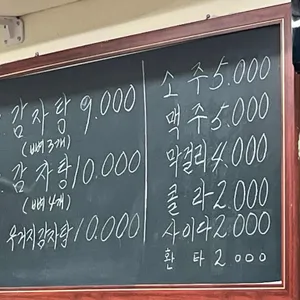 감자탕 9.000
(뼈3개)
감자탕 10.000
(뼈4개)
우거지감자탕 10.000
소주 5.000
맥주 5.000
막걸리 4.000
콜라 2.000
사이다 2.000
환타 2000